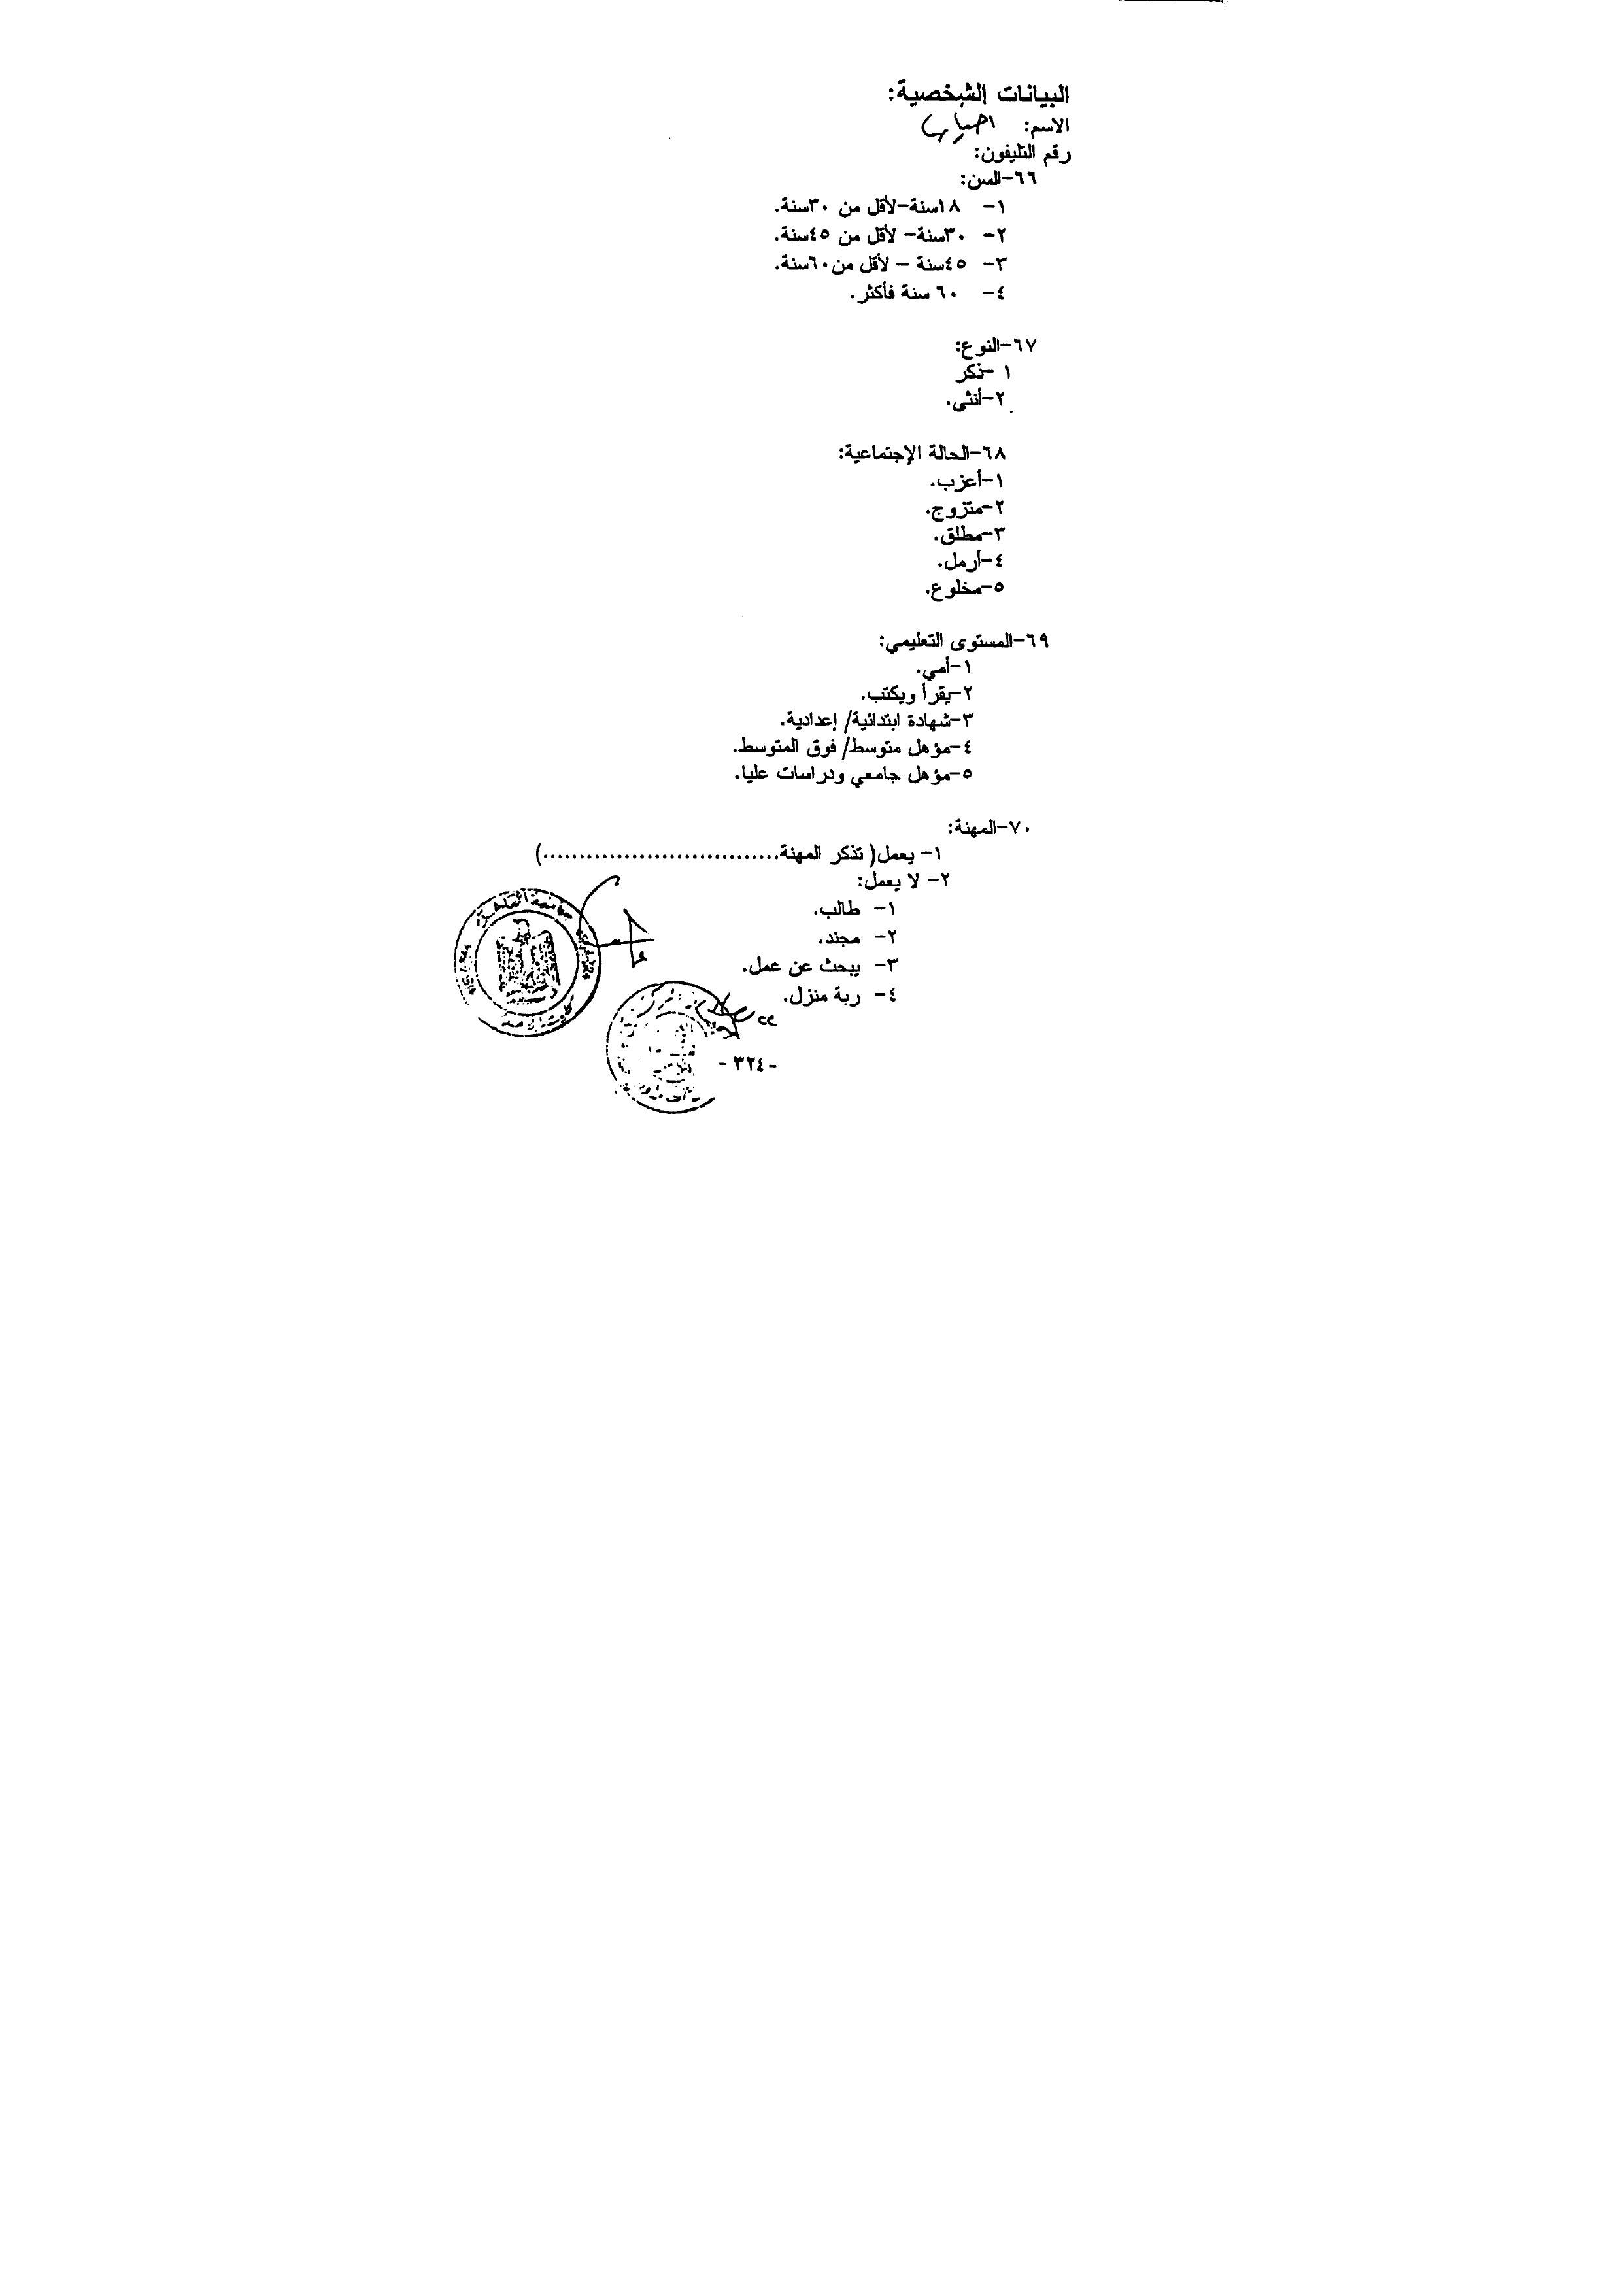 البيانات الشخصية:
الاسم:
رقم التليفون:
٦٦-السن:
١- ١٨سنة-لأقل من ٣٠سنة.
٢- ٣٠سنة- لأقل من ٤٥سنة.
٣- ٤٥سنة – لأقل من٦٠سنة.
٤- ٦٠ سنة فأكثر.
٦٧-النوع:
١ -ذكر
٢-أنثى.
٦٨-الحالة الإجتماعية:
١-أعزب.
٢-متزوج.
٣-مطلق.
٤-أرمل.
٥-مخلوع.
٦٩-المستوى التعليمي:
١-أمي.
٢-يقرأ ويكتب.
٣-شهادة ابتدائية/ إعدادية.
٤-مؤهل متوسط/ فوق المتوسط.
٥-مؤهل جامعي ودراسات عليا.
٧٠-المهنة:
١- يعمل( تذكر المهنة.................................)
٢- لا يعمل:
١- طالب.
٢- مجند.
٣- يبحث عن عمل.
٤- ربة منزل.
جامعة القاهرة
- ٣٢٤ -